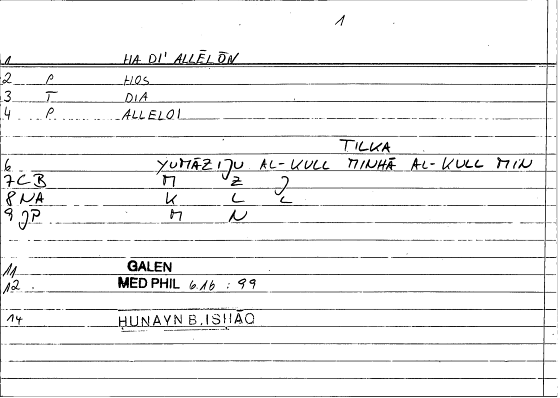 1
1 HA DI' ALLĒLŌN
2 P HOS
3 T DIA
4 P ALLELOI
TILKA
6 YUMĀZIJU AL-KULL MINHĀ AL-KULL MIN
7 CB M Z J
8 NA K L L
9 JP M N
11 GALEN
12 MED PHIL 6.16 : 99
14 HUNAYN B. ISḤĀQ